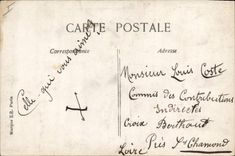 CARTE POSTALE
Correspondance
Adresse
Celle qui vous aime
Monsieur Louis Coste
Commis des Contributions
Indirectes
Croix Berthaud
Près St Chamond
Loire